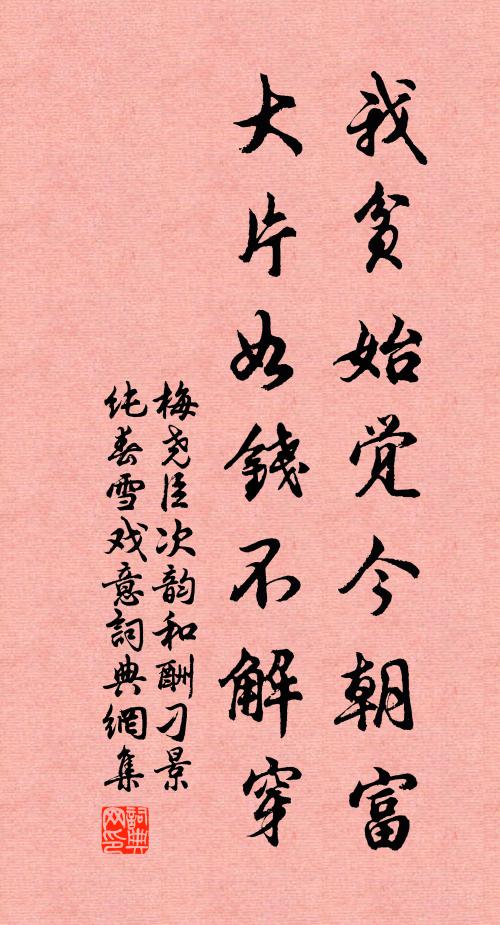 我贫始觉今朝富
大片如錢不解穿
梅尧臣次韵和酬刁景
纯春雪戏意詞典網集
詞典
网印